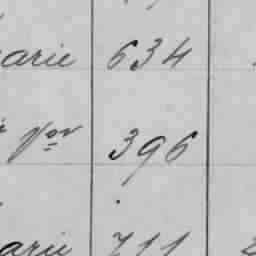 arie 634
396
arie 711